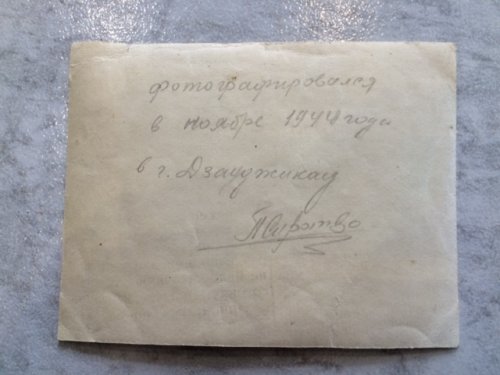 фотографировался
в ноябре 1944 года
в г. Дзауджикау